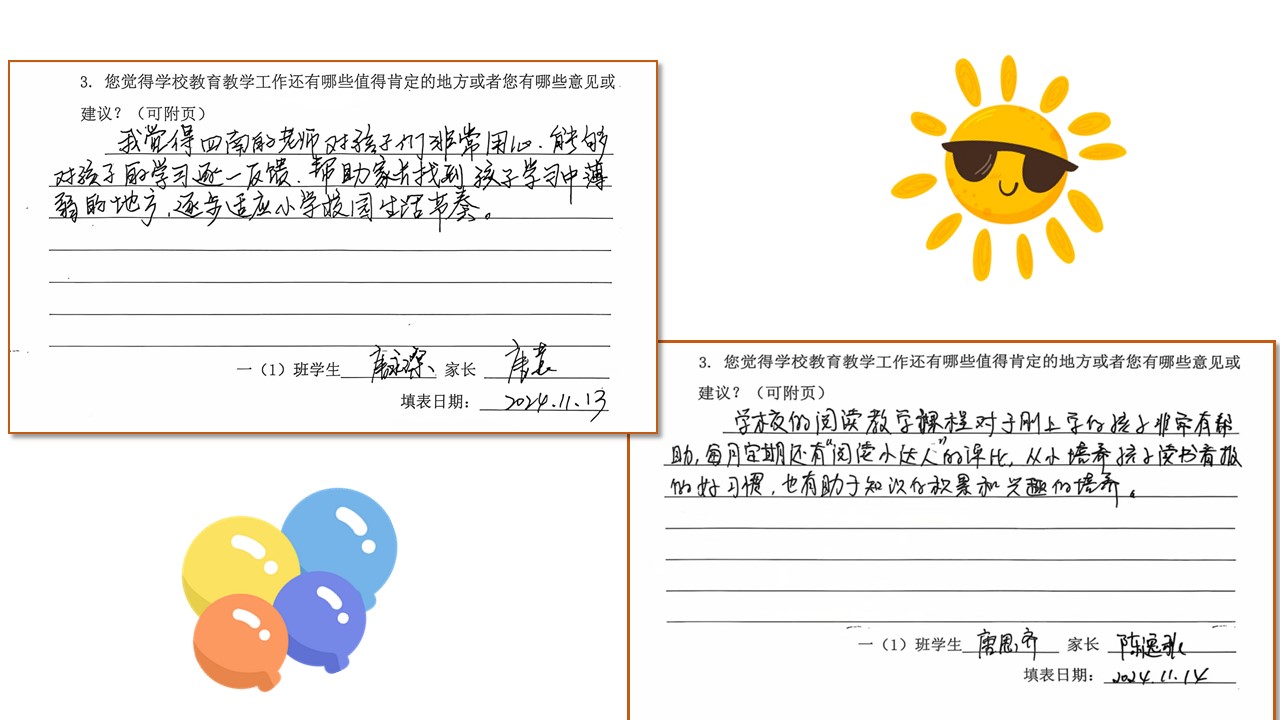 3. 您觉得学校教育教学工作还有哪些值得肯定的地方或者您有哪些意见或
建议？（可附页）
我觉得四南的老师对孩子们非常用心.能够
对孩子的学习逐一反馈.帮助家长找到孩子学习中薄
弱的地方,逐步适应小学校园生活节奏。
一（1）班学生 家长 唐慧
填表日期： 2024.11.13
3. 您觉得学校教育教学工作还有哪些值得肯定的地方或者您有哪些意见或
建议？（可附页）
学校的阅读教学课程对于刚上学的孩子非常有帮
助,每月定期还有“阅读小达人”的评比,从小培养孩子读书看报
的好习惯,也有助于知识的积累和兴趣的培养。
一（1）班学生 唐思齐 家长 陈逸
填表日期： 2024.11.14